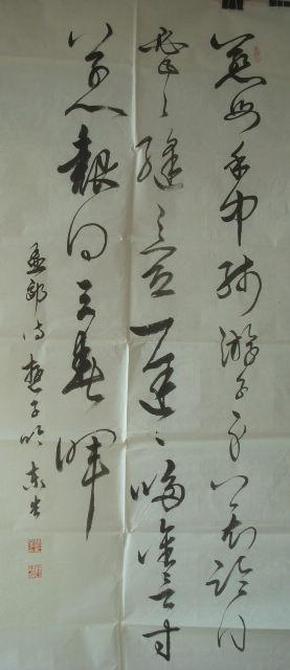 慈母手中線游子身上衣臨行
密々縫意恐遲々歸誰言寸
草心報得三春暉
孟郊詩遊子吟